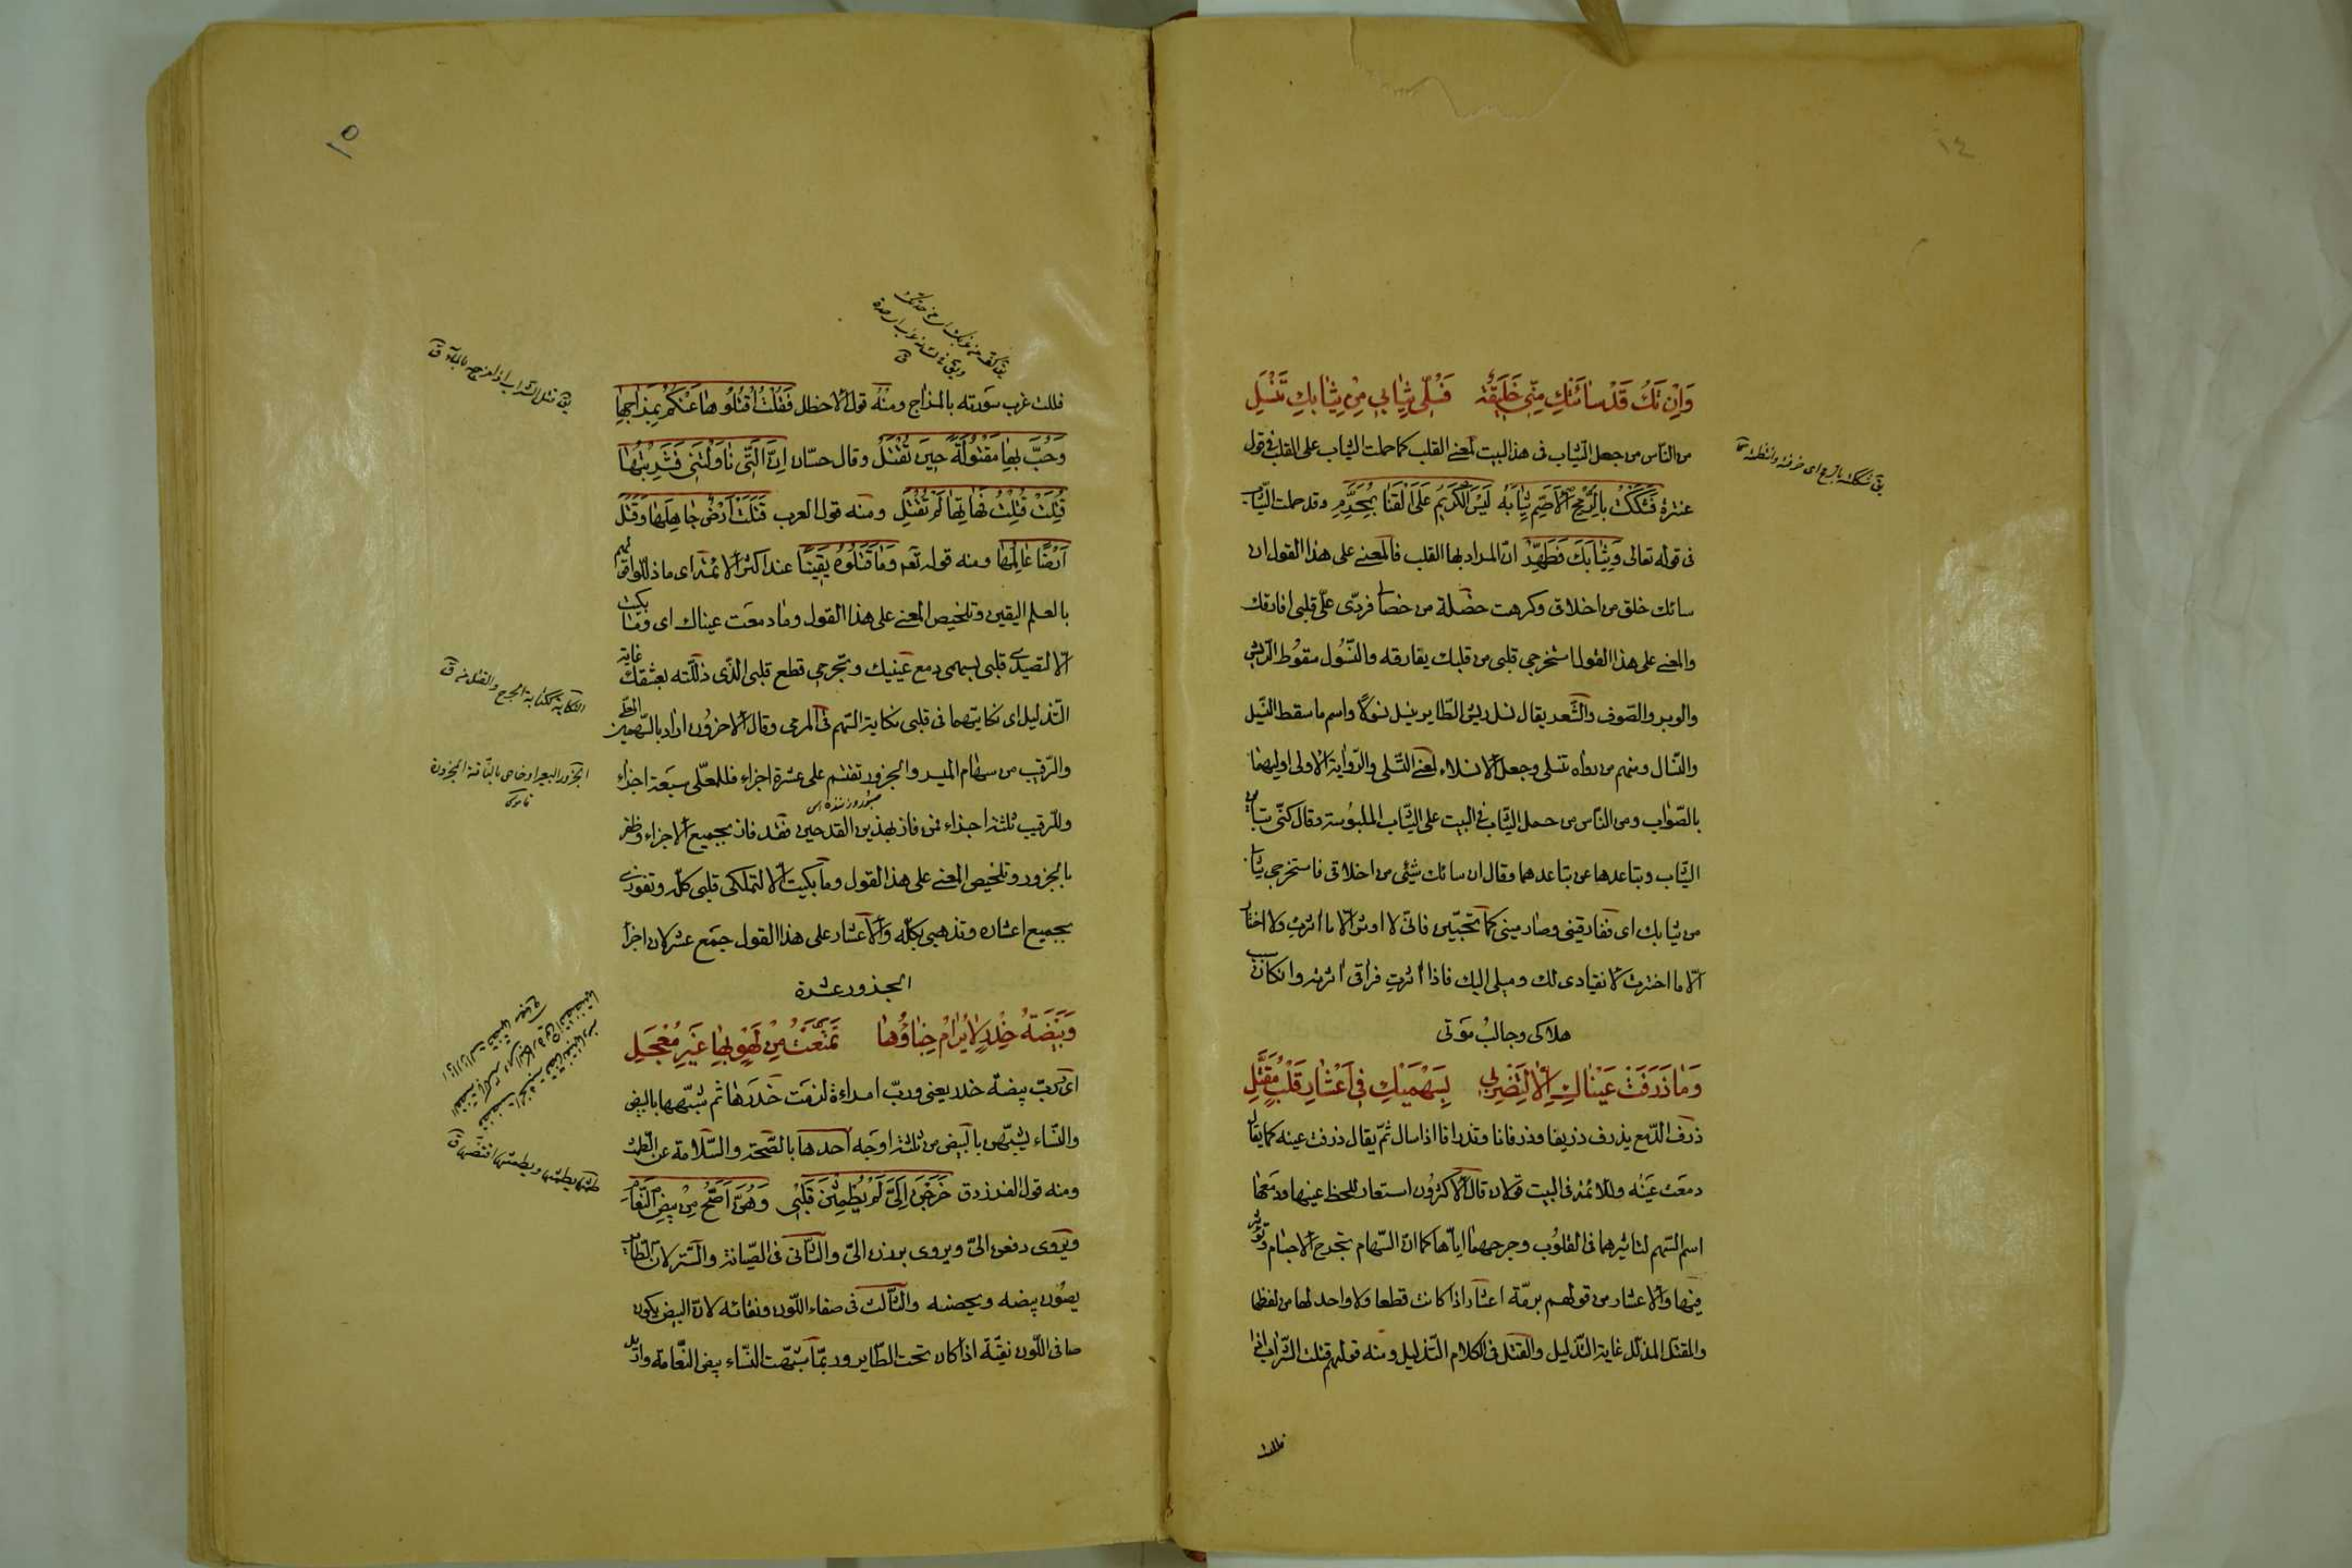 ١٤
وَاِنْ تَكُ قَدْ سٰائَتْكِ مِنّي خَليقَةٌ فَسُلّى ثِيٰابي مِنْ ثِيٰابِكِ تَنْسُلِ
من النّاس من جعل الثياب فى هذا البيت لمعنى القلب كما حملت الثياب على القلب فى قول
عنترة فَشَكَكْتُ بِالرُّمْحِ الْاَصَمِّ ثِيٰابَهُ لَيْسَ الْكَريمُ عَلَى الْقَنٰا بِمُحَرَّمِ وقد حملت الثياب
فى قوله تعالى وَثِيٰابَكَ فَطَهِّرْ انّ المراد بها القلب فالمعنى على هذا القول ان
سائك خلق من اخلاق وكرهت خصلة من خصالى فردّى علىّ قلبى افارقك
والمعنى على هذا القول استخرجى قلبى من قلبك يفارقه والنّسُول سقوُط الرّيش
والوبر والصّوف والشَّعر يقال نسل ريش الطّاير ينسل نسوُلًا واسم ما سقط النّسيل
والنّسال ومنهم من رواه تنسلى وجعل الانسلاء لمعنى التّسلى والرّواية الاولى اوليهما
بالصّواب ومن النّاس من حمل الثياب فى البيت على الثياب الملبُوسة وقال كنّى بتباين
الثياب وتباعدها عن تباعدهما وقال ان سائك شيئى من اخلاقى فاستخرجى ثيابى
من ثيابك اى ففارقينى وصارمينى كما تحبّين فانّى لا اوثر الّا ما اثرتِ ولا اختار
الّا ما اخترت لانقيادى لك وميلى اليك فاذا اثرتِ فراقى اثرته وان كان سبب
هلاكى وجالب موَتى
وَمٰا ذَرَفَتْ عَيْنٰاكِ اِلّٰا لِتَضْرِبي بِسَهْمَيْكِ في اَعْشٰارِ قَلْبٍ مُقَتَّلِ
ذرف الدّمع يذرف ذريفا وذرفانا وتذرافا اذا سال ثمّ يقال ذرفت عينه كما يقال
دمعَت عَينه وللائمة فى البيت قولان قال الاكثروُن استعار للحظ عينيها ودمعهما
اسم السّهم لتاثيرهما فى القلوُب وجرحهما ايّاها كما انّ السّهام تجرح الاجسام وتوثّر
فيها والاعشار من قولهم برمّة اعشار اذا كانت قطعا ولا واحد لها من لفظها
والمقتل المذلّل غاية التّذليل والقتل فى الكلام التّذليل ومنه قولهم قتلت الشّراب اذا
فللت
يق شككته بالرمح اى خرقته وانتظمته ق
١٥
فللت غرب سَورته بالمزاج ومنهُ قول الاخطل فَقُلْتُ اقْتُلُوْهٰا عَنْكُمْ بِمِزٰاجِهٰا
وَحُبَّ بِهٰا مَقْتُولَةً حينَ تُقْتَلُ وقال حسّان اِنَّ الَّتي نٰاوَلْتَني فَشَرِبْتُهٰا
قُتِلَتْ قُتِلْتَ فَهٰاتِهٰا لَمْ تُقْتَلِ ومنه قول العرب قَتَلَتْ اَرْضٌ جٰاهِلَهٰا وَقَتَلَ
اَرْضًا عٰالِمُهٰا ومنه قوله تعم وَمٰا قَتَلُوهُ يَقينًا عند اكثر الائمة اى ما ذلّلوا قولهم
بالعلم اليقين وتلخيص المعنى على هذا القول وما دمعَت عيناك اى وما بكت
الّا لتصيدى قلبى بسهمى دمع عَينيك وتجرحى قطع قلبى الذّى ذلّلته بعشقك غاية
التّذليل اى نكايتهما فى قلبى نكاية السّهم فى المرمى وقال الاخروُن اراد بالسّهمين المعلّى
والرّقيب من سهام الميسر والجزور تقسّم على عشرة اجزاء فللمعلّى سبعَة اجزاء
وللرّقيب ثلثة اجزاء فمن فاز بهذين القدحين فقد فاز بجميع الاجزاء وظفر
بالجزور وتلخيص المعنى على هذا القول وما بكيت الّا لتملكى قلبى كلّه وتفوزى
بجميع اعشاره وتذهبى بكلّه والاعشار على هذا القول جمَع عشر لان اجزاء
الجزور عشرة
وَبَيْضَةِ خِدْرٍ لٰا يُرٰامُ خِبٰاؤُهٰا تَمَتَّعْتُ مِنْ لَهْوٍ بِهٰا غَيْرَ مُعْجَلِ
اى رُبّ بيضة خدر يعنى وربّ امراءة لزمت خدرَها ثم شبّهها بالبيض
والنّساء يشبّهن بالبَيض من ثلثة اوجَه احدها بالصّحة والسّلامة عن الطّمث
ومنه قول الفرزدق خَرَجْنَ اِلَىَّ لَمْ يُطْمَثْنَ قَبْلي وَهُنَّ اَصَحُّ مِنْ بَيْضِ النَّعٰامِ
ويَروى دفعن الىّ ويروى برزن الىّ والثّانى فى الصّيانة والسّتر لانّ الطّاير
يصُون بيضه ويحضنه والثّالث فى صفاء اللّون ونقائه لانّ البيض يكون
صافى اللّون نقيّه اذا كان تحت الطّاير وربّما شبّهت النّساء ببيض النّعامة واريد
يق قتل الشراب اذا مزجه بالماء ق
النكاية ككتابة الجرح والقتل منه ق
الجزور البعير او خاص بالنّاقة المجزورة
قاموس